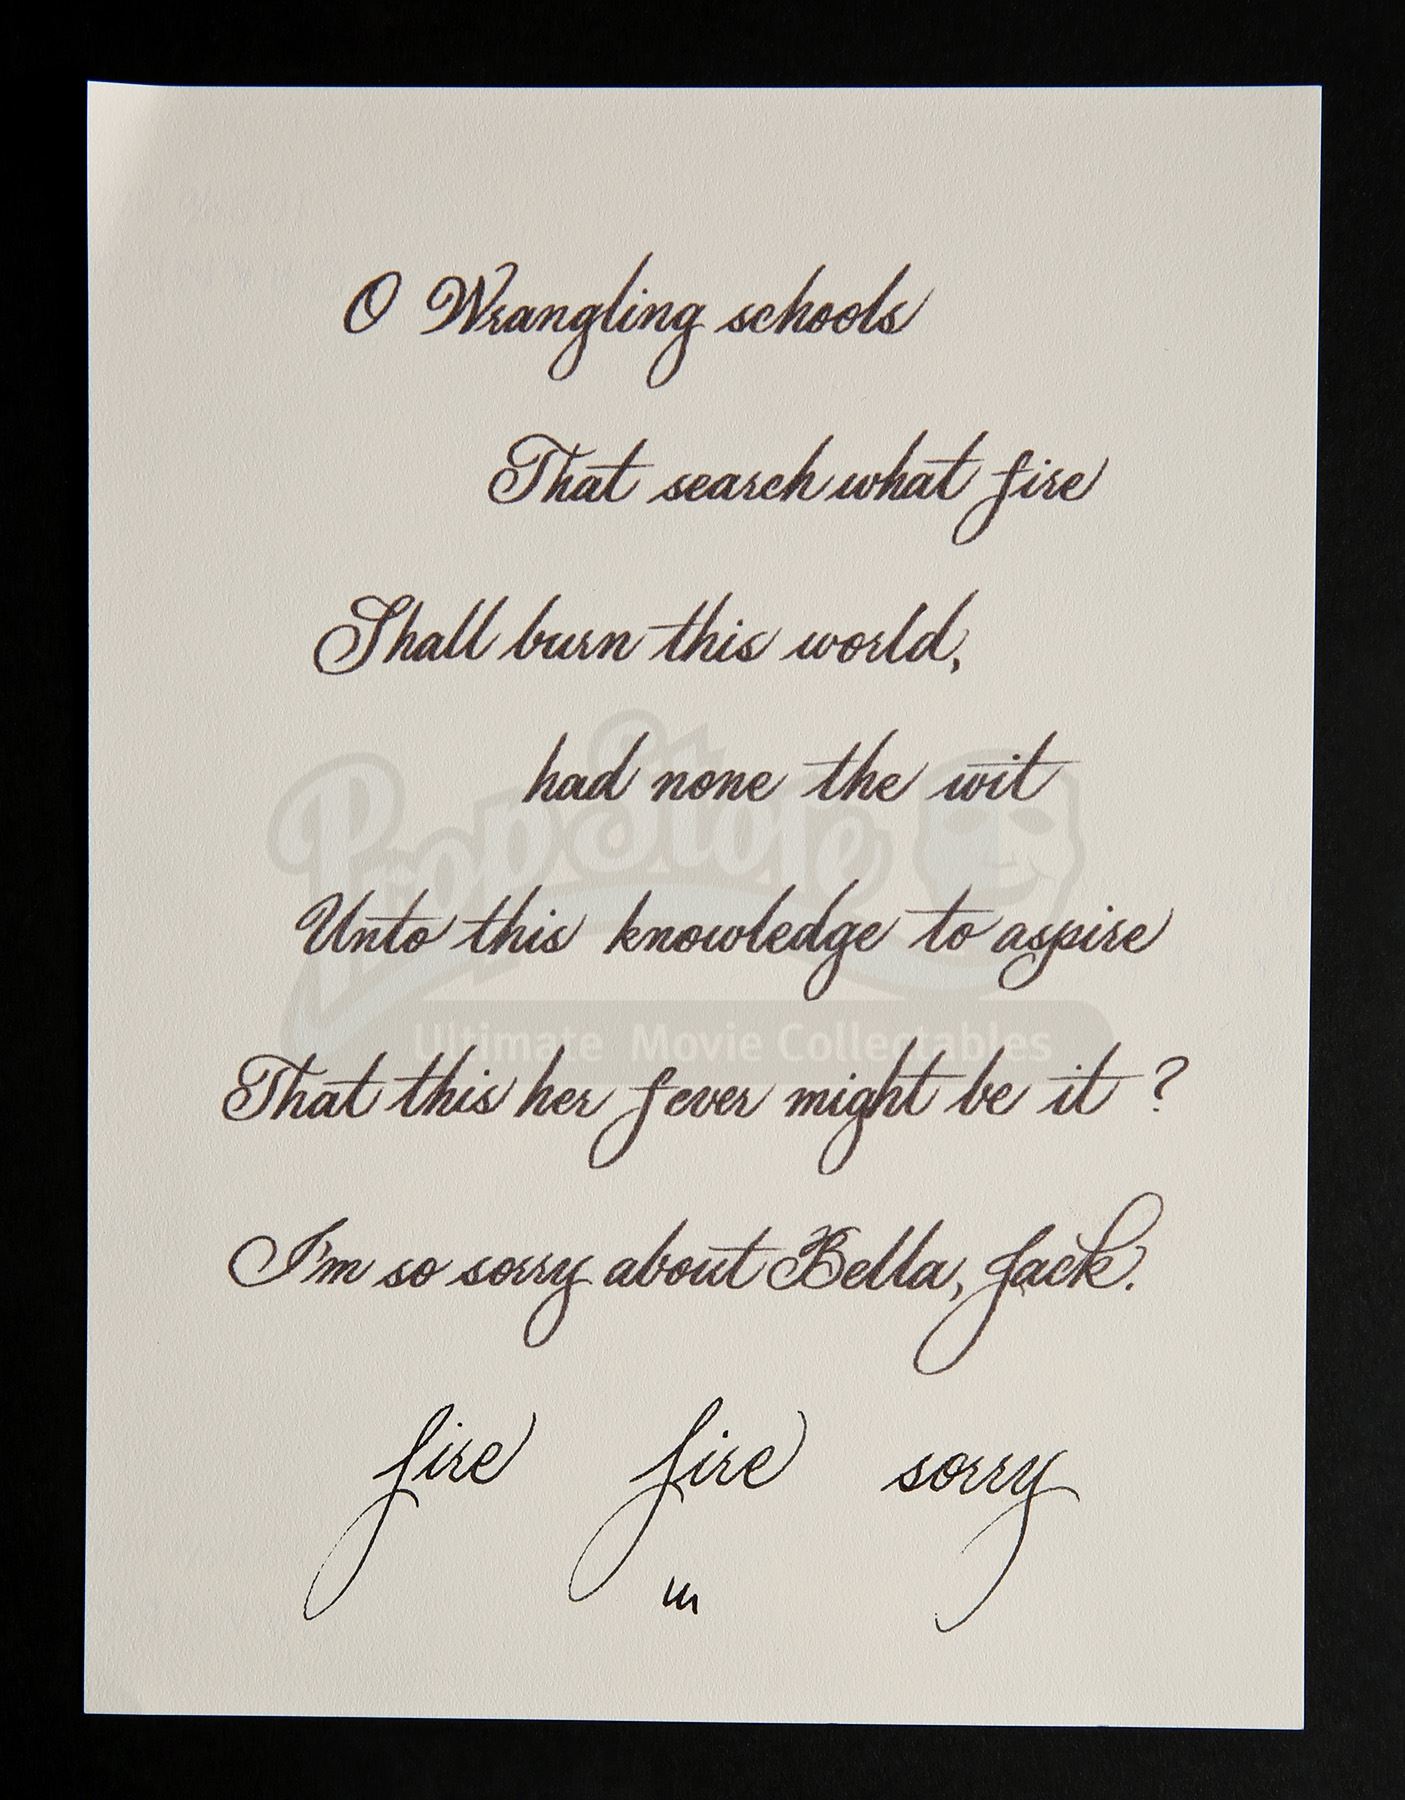 O Wrangling schools
That search what fire
Shall burn this world,
had none the wit
PropStore
Unto this knowledge to aspire
Ultimate Movie Collectables
That this her fever might be it ?
I'm so sorry about Bella, Jack.
fire fire sorry